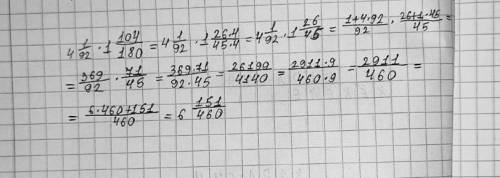 4 1/92 · 1 104/180 = 4 1/92 · 1 26·4/45·4 = 4 1/92 · 1 26/45 = 1+4·92/92 · 26+1·45/45 =
= 369/92 · 71/45 = 369·71/92·45 = 26190/4140 = 2911·9/460·9 = 2911/460 =
= 6·460+151/460 = 6 151/460